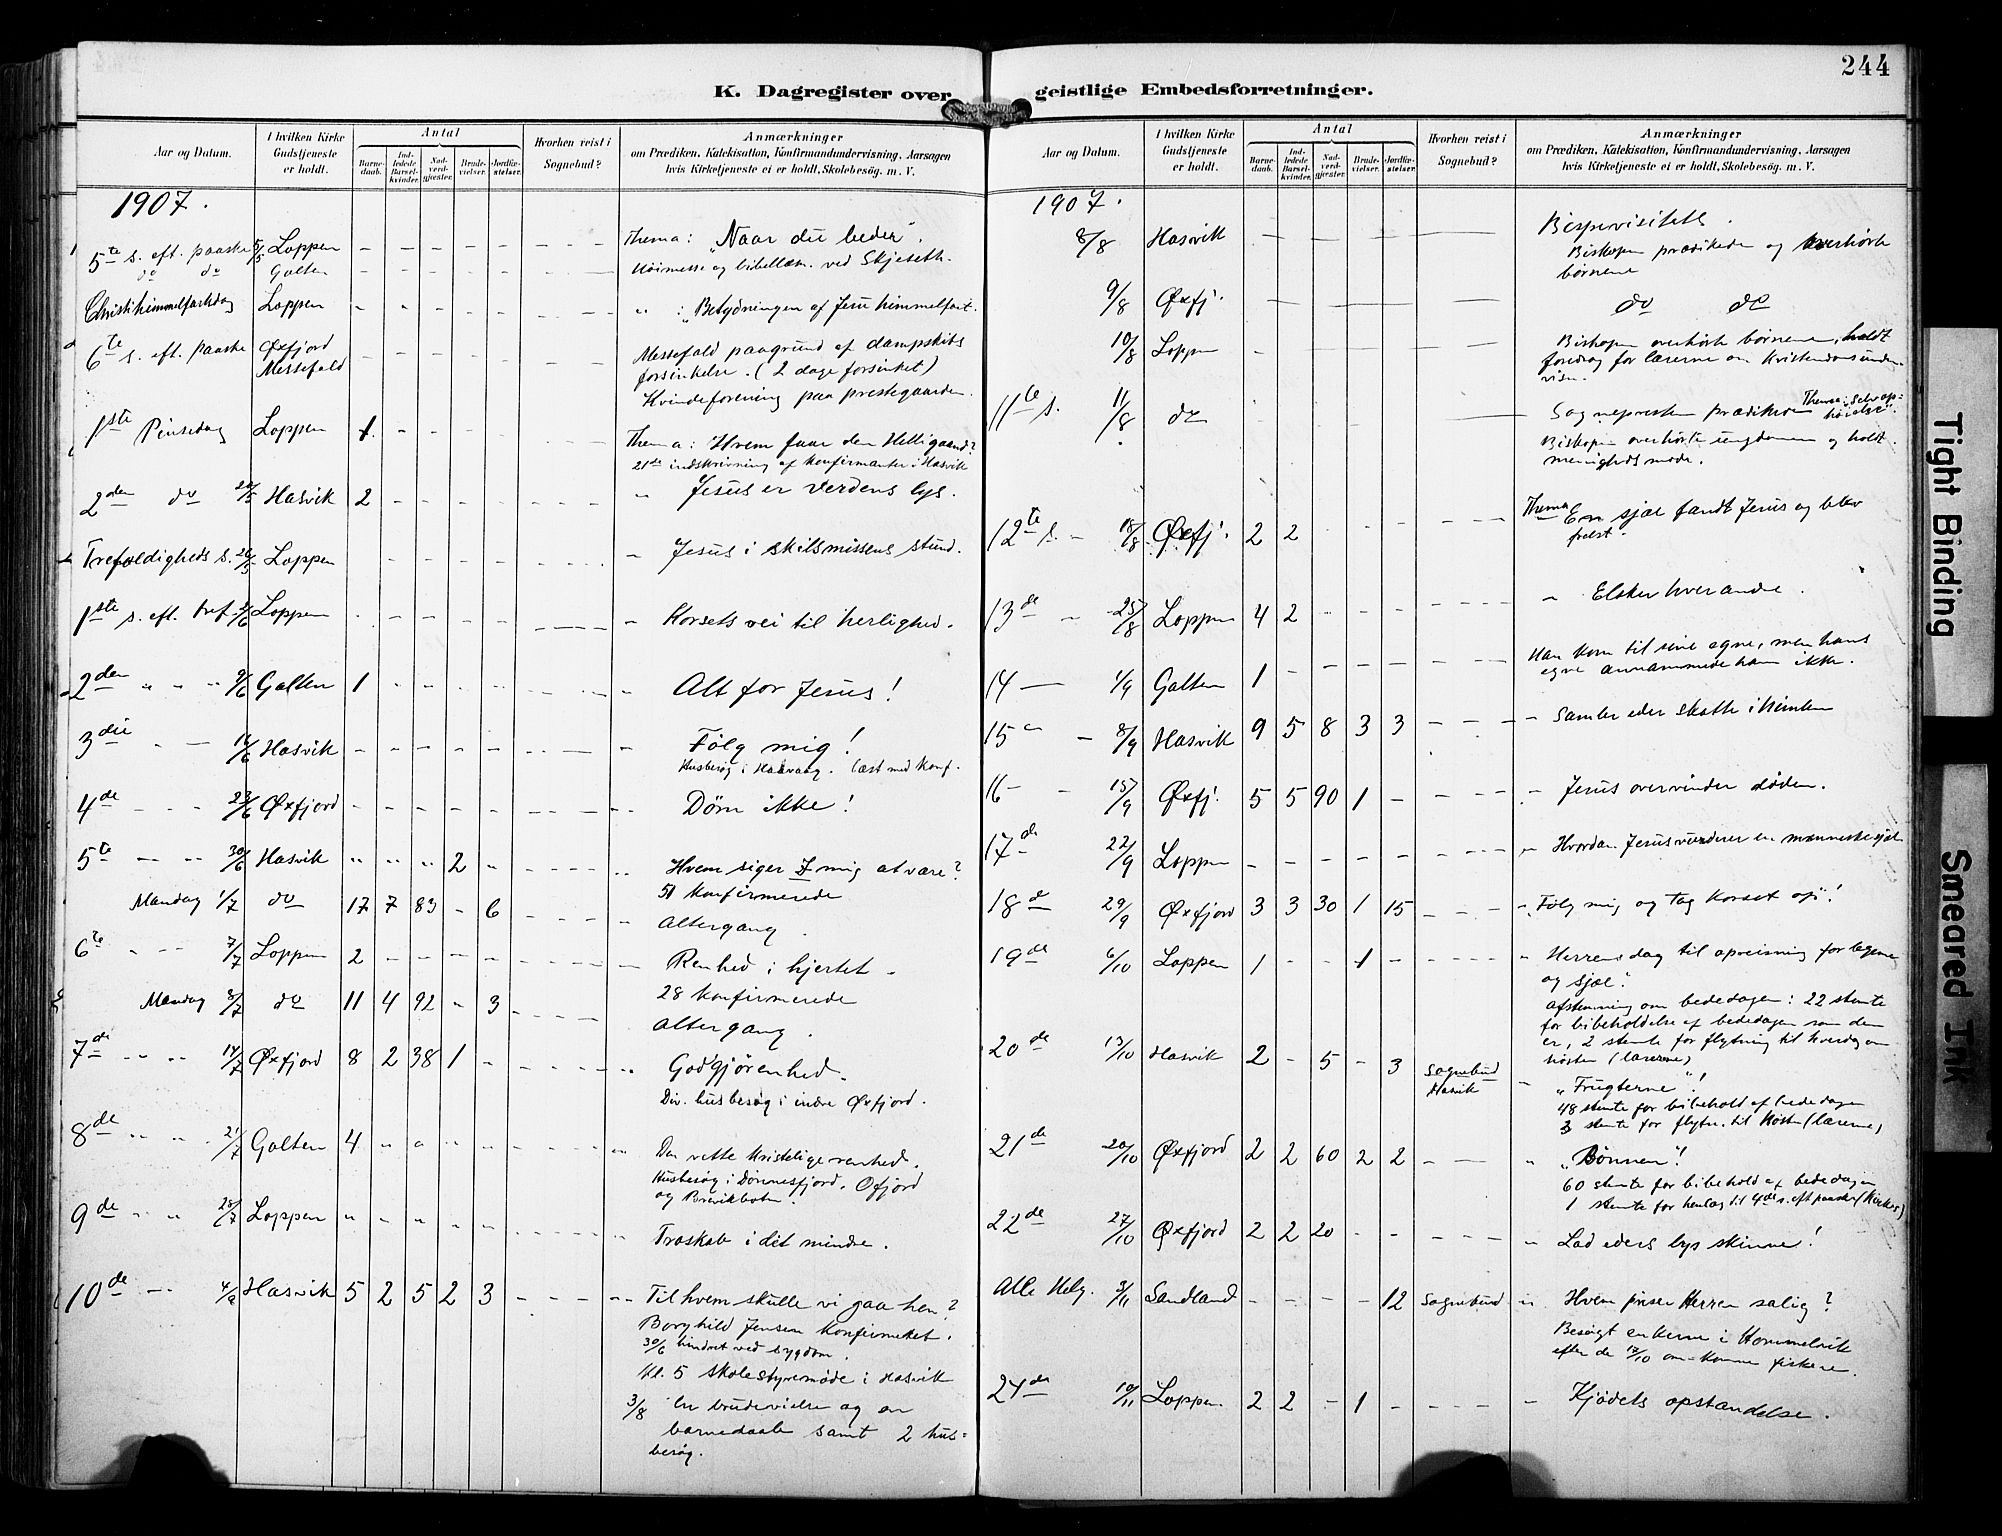 244
K. Dagregister over geistlige Embedsforretninger.
Aar og Datum.
I hvilken Kirke Gudstjeneste er holdt.
Antal
Barnedaab.
Indledede Barselkvinder.
Nadverdgjester.
Brudevielser.
Jordfæstelser.
Hvorhen reist i Sognebud?
Anmærkninger
om Prædiken, Katekisation, Konfirmandundervisning, Aarsagen
hvis Kirketjeneste ei er holdt, Skolebesøg. m. V.
1907.
5te s. eft. paaske 5/5 Loppen - - - - - Thema: "Naar du beder".
do do Galten - - - - - Høimesse og bibellæsn. ved Skjeseth.
Christi himmelfartsdag Loppen - - - - - " : "Betydningen af Jesu himmelfart.
6te s. eft. paaske Øxfjord Messefald - - - - - Messefald paagrund af dampskibs
forsinkelse. (2 dage forsinket)
Kvindeforening paa prestegaarden.
1ste Pinsedag Loppen 1 - - - - Thema: Hvem faar den Helligaand?
21de indskrivning af konfirmanter i Hasvik
2den do 20/5 Hasvik 2 - - - - " Jesus er verdens lys.
Trefoldigheds s. 26/5 Loppen - Jesus i skilsmissens stund.
1ste s. eft. tref. 2/6 Loppen - - - - - Korsets vei til herlighed.
2den " " " 9/6 Galten 1 - - - - Alt for Jesus!
3die - - 16/6 Hasvik - - - - - Følg mig!
Husbesøg i Haavaag. læst med konf.
4de - - - 23/6 Øxfjord - - - - - Døm ikke!
5te - - " 30/6 Hasvik " " " 2 " Hvem siger I mig at være?
Mandag 1/7 do 17 7 83 - 6 51 konfirmerede
Altergang.
6te - - 7/7 Loppen 2 - - - - Renhed i hjertet -
Mandag 8/7 do 11 4 92 - 3 28 konfirmerede
Altergang.
7de " " " 14/7 Øxfjord 8 2 38 1 - Godgjørenhed.
Div. husbesøg i indre Øxfjord.
8de " " " 21/7 Galten 4 " " " " Den rette kristelige renhed.
Husbesøg i Dønnesfjord, Ofjord
og Brevikbotn.
9de " " 28/7 Loppen " - - " - Troskab i det mindre.
10de - 4/8 Hasvik 5 2 5 2 3 Til hvem skulle vi gaa hen?
Borghild Jensen konfirmeret.
30/6 hindret ved sygdom.
Kl. 5 skolestyremøde i Hasvik
3/8 En brudevielse og en
barnedaab samt 2 hus-
besøg.
1907.
8/8 Hasvik - - - - - Bispevisitats.
Biskopen prædikede og overhørte
børnene
9/8 Øxfj. - - - - - do do
10/8 Loppen - - Biskopen overhørte børnene, holdt
foredrag for lærerne om kristendomsunder-
visn.
11te s. 11/8 do - - - - - Sognepresten prædikede Thema: Selvop-
høielse".
Biskopen overhørte ungdommen og holdt
menighedsmøde.
12te s. - 18/8 Øxfj. 2 2 - - - Thema En sjæl fandt Jesus og blev
frelst.
13de - 25/8 Loppen 4 2 - - - " Elsker hverandre.
14 - 1/9 Galten 1 - - - - Han kom til sine egne, men hans
egne annammede ham ikke.
15 - 8/9 Hasvik 9 5 8 3 3 - Samler eder skatte i himlen
16 - - 15/9 Øxfj. 5 5 90 1 - - Jesus overvinder døden.
17de 22/9 Loppen - - - - - " Hvordan Jesus vurderer en menneskesjæl
18de 29/9 Øxfjord 3 3 30 1 15 " Følg mig og tag korset op!
19de 6/10 Loppen 1 - - 1 - " Herrens dag til opreisning for legeme
og sjæl".
Afstemning om bededagen: 22 stemte
for bibeholdelse af bededagen som den
er, 2 stemte for flytning til hverdag om
høsten (lærerne)
20de 13/10 Hasvik 2 - 5 - 3 Sognebud Hasvik - "Frugterne"!
48 stemte for bibehold af bededagen
3 stemte for flytn. til høsten (lærerne)
21de 20/10 Øxfjord 2 2 60 2 2 " "Bønnen"!
60 stemte for bibehold af bededagen
1 stemte for henlæg til 4de s. eft paaske
22de 27/10 Øxfjord 2 2 20 - - " Lad eders lys skinne!
Alle Helg. 3/11 Sandland - - - - 12 Sognebud " Hvem priser Herren salig?
Besøgt enkerne i Hommelvik
efter de 17/10 om-komne fiskere.
24de 10/11 Loppen 2 2 - 1 - - Kjødets opstandelse.
Tight Binding
Smeared Ink